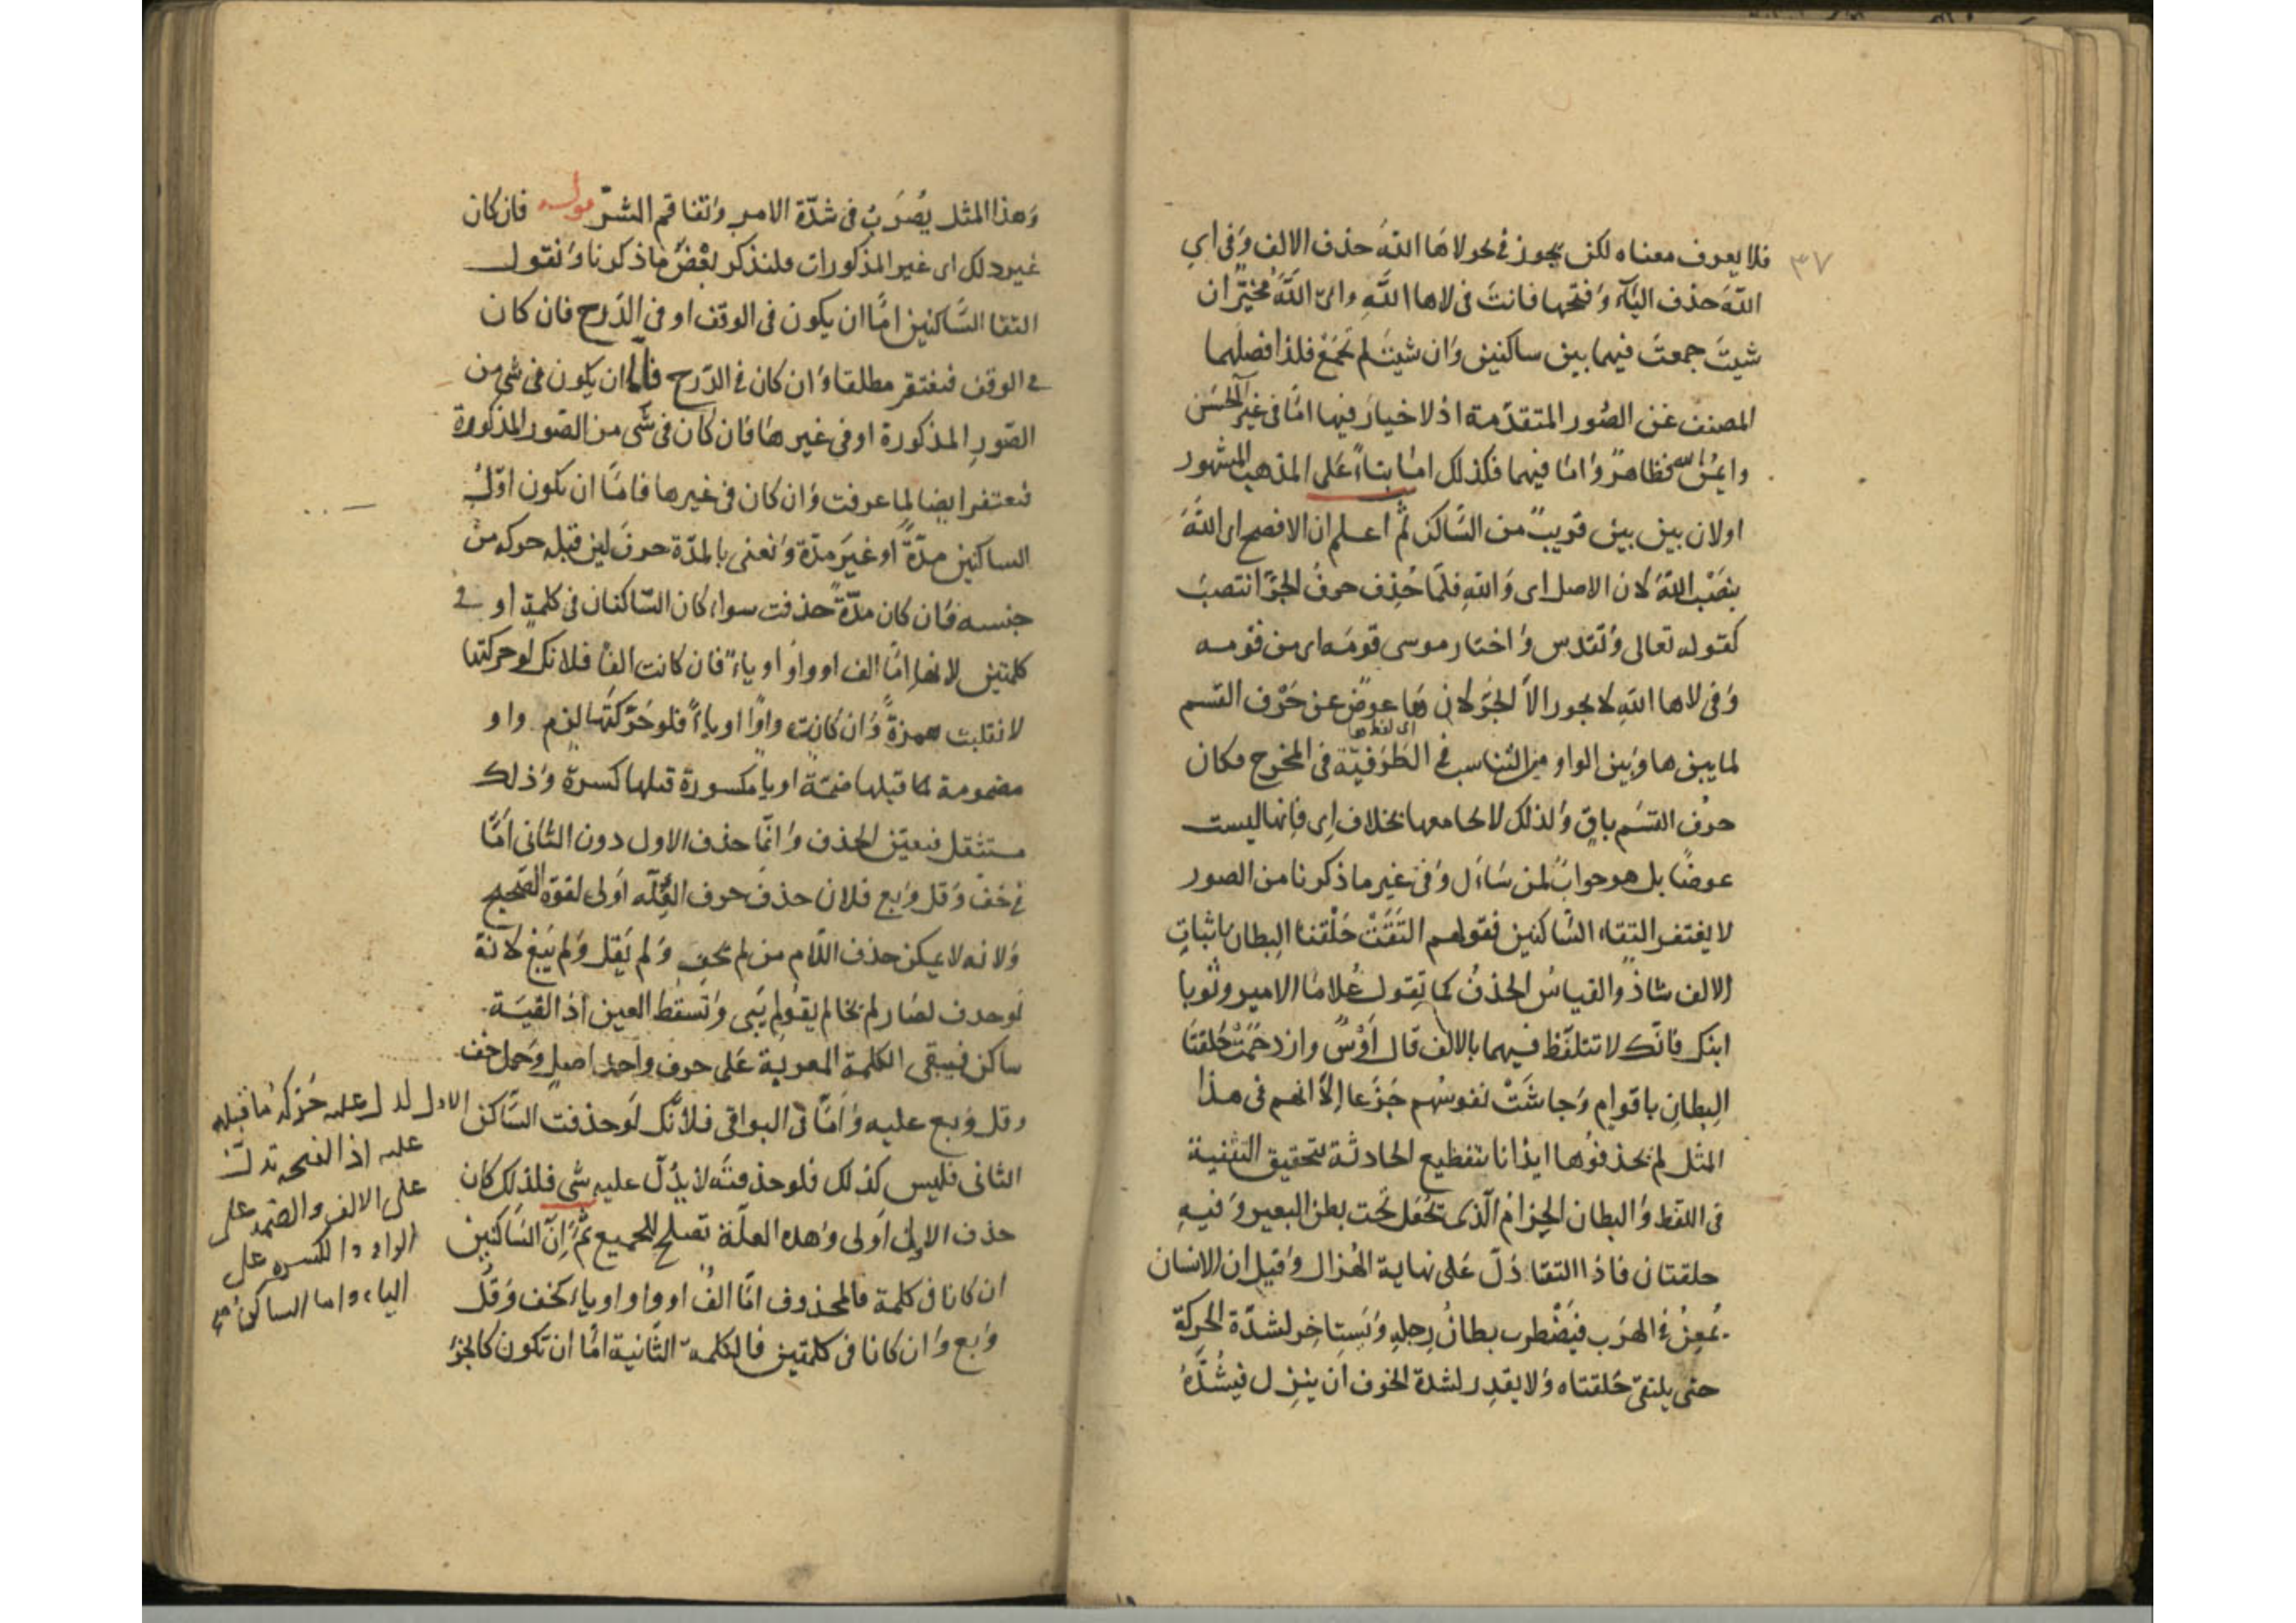 ٣٧
فلا يعرف معناه لكن يجوز في نحو لاها الله حذف الالف وفي اي
الله حذف الياء وفتحها فانت في لاها الله واي الله مخيّر ان
شيت جمعت فيهما بين ساكنين وان شيت لم تجمع فلذا فصلهما
المصنف عن الصور المتقدمة اذ لا خيار فيها امّا في غير آلحسن
وايمن الله فظاهر واما فيهما فكذلك اما بناءً على المذهب المشهور
اولان بين بين قريب من الساكن ثم اعلم ان الافصح اي اللهَ
بنصب الله لان الاصل اي والله فلمّا حُذِف حرف الجر انتصب
كقوله تعالى وتقدس واختار موسى قومه اى من قومه
وفي لاها اللهِ لا يجوز الا الجرّ لان ها عوض عن حرف القسم
اى لفظ ها
لما بين ها وبين الواو من التناسب في الطَرَفيّة في المخرج فكان
حرف القسم باقٍ ولذلك لا يجامعها بخلاف اي فانها ليست
عوضًا بل هو جوابٌ لمن سَاءَل وفي غير ما ذكرنا من الصور
لا يغتفر التقاء السّاكنين فقولهم التَقَتْ حَلْقتا البِطان باثباتِ
الالف شاذّ والقياس الحذف كما تقول غلاما الامير وثوبا
ابنك فانّك لا تتلفّظ فيهما بالالف قال اَوْسٌ وازدحَمَتْ حَلقتَا
البِطانِ باقوامٍ وَجاشَتْ نفوسُهم جَزَعا اِلّا انهم في هذا
المثل لم يحذفوها ايذانا بتفظيع الحادثة بتحقيق التثنية
في اللفظ والبطان الحِزام الّذى تجعل تحت بطن البعير وفيهِ
حلقتان فاذا التقتا دَلّ عَلى نهاية الهُزال وقيل ان الانسان
يُمعِنُ في الهرَب فيَضْطرب بطانُ رِجلِهِ ويَستاخِر لشدّة الحركة
حتى يلتقي حَلقتاه ولا يقدِر لشدة الخوف ان ينزل فيَشُدَّهُ
وهذا المثل يُضرَبُ في شدّة الامر وتفاقم الشرّ قوله فان كان
غير ذلك اى غير المذكورات فلنذكر بعْضَ ما ذكرنا ونقول
التقا السَّاكنين امّا ان يكون في الوقف او في الدَرج فان كان
في الوقف فيغتفر مطلقا وان كان في الدّرج فاما ان يكون في شي من
الصّورِ المذكورة او في غيرها فان كان في شي من الصّور المذكورة
فيغتفر ايضا لما عرفت وان كان في غيرها فامّا ان يكون اوّل
الساكنين مدّةً او غيرَ مدّة ونعني بالمدّة حرفَ لين قبله حركة من
جنسه فان كان مدّةً حذفت سواء كان السّاكنان في كلمةٍ او في
كلمتين لانها امّا الف او واو او ياءٌ فان كانت الفًا فلانك لو حركتها
لانقلبت همزةً وان كانت واوًا او ياءً فلو حَرّكتَها لزم واو
مضمومة ما قبلها ضمّة او ياء مكسورة قبلها كسرة وذلك
مستثقل فتعيّن الحذف وانّما حذف الاول دون الثاني امّا
في خف وقل وبع فلان حذف حرف العِلّه اولى لقوة الصّحيح
ولانه لا يمكن حذف اللّام من لم يخف ولم يَقل ولم يَبع لانه
لو حذف لصَار لم يخا لم يقو لم يَبي وتسقط العين اذ القيَت
ساكن فيبقى الكلمة المعربة عَلى حرف واحد اصلي وحَمل خف
وقل وبع عليه وامّا في البواقي فلانّك لو حذفت السّاكن
الاول لدل عليه حركة ما قبله
عليه اذ الفتحه تدل
على الالف والضمه على
الواو والكسره على
الياء واما الساكن
الثاني فليس كذلك فلو حذفتَه لا يدُلّ عليه شي فلذلك كان
حذف الاول اَولى وهذه العلّة تصلح للجميع ثمّ اِنّ السّاكنين
ان كانا في كلمة فالمحذوف امّا الفُ او واو او ياء كخف وقل
وبع وان كانا في كلمتين فالكلمة الثّانية امّا ان تكون كالجزءِ